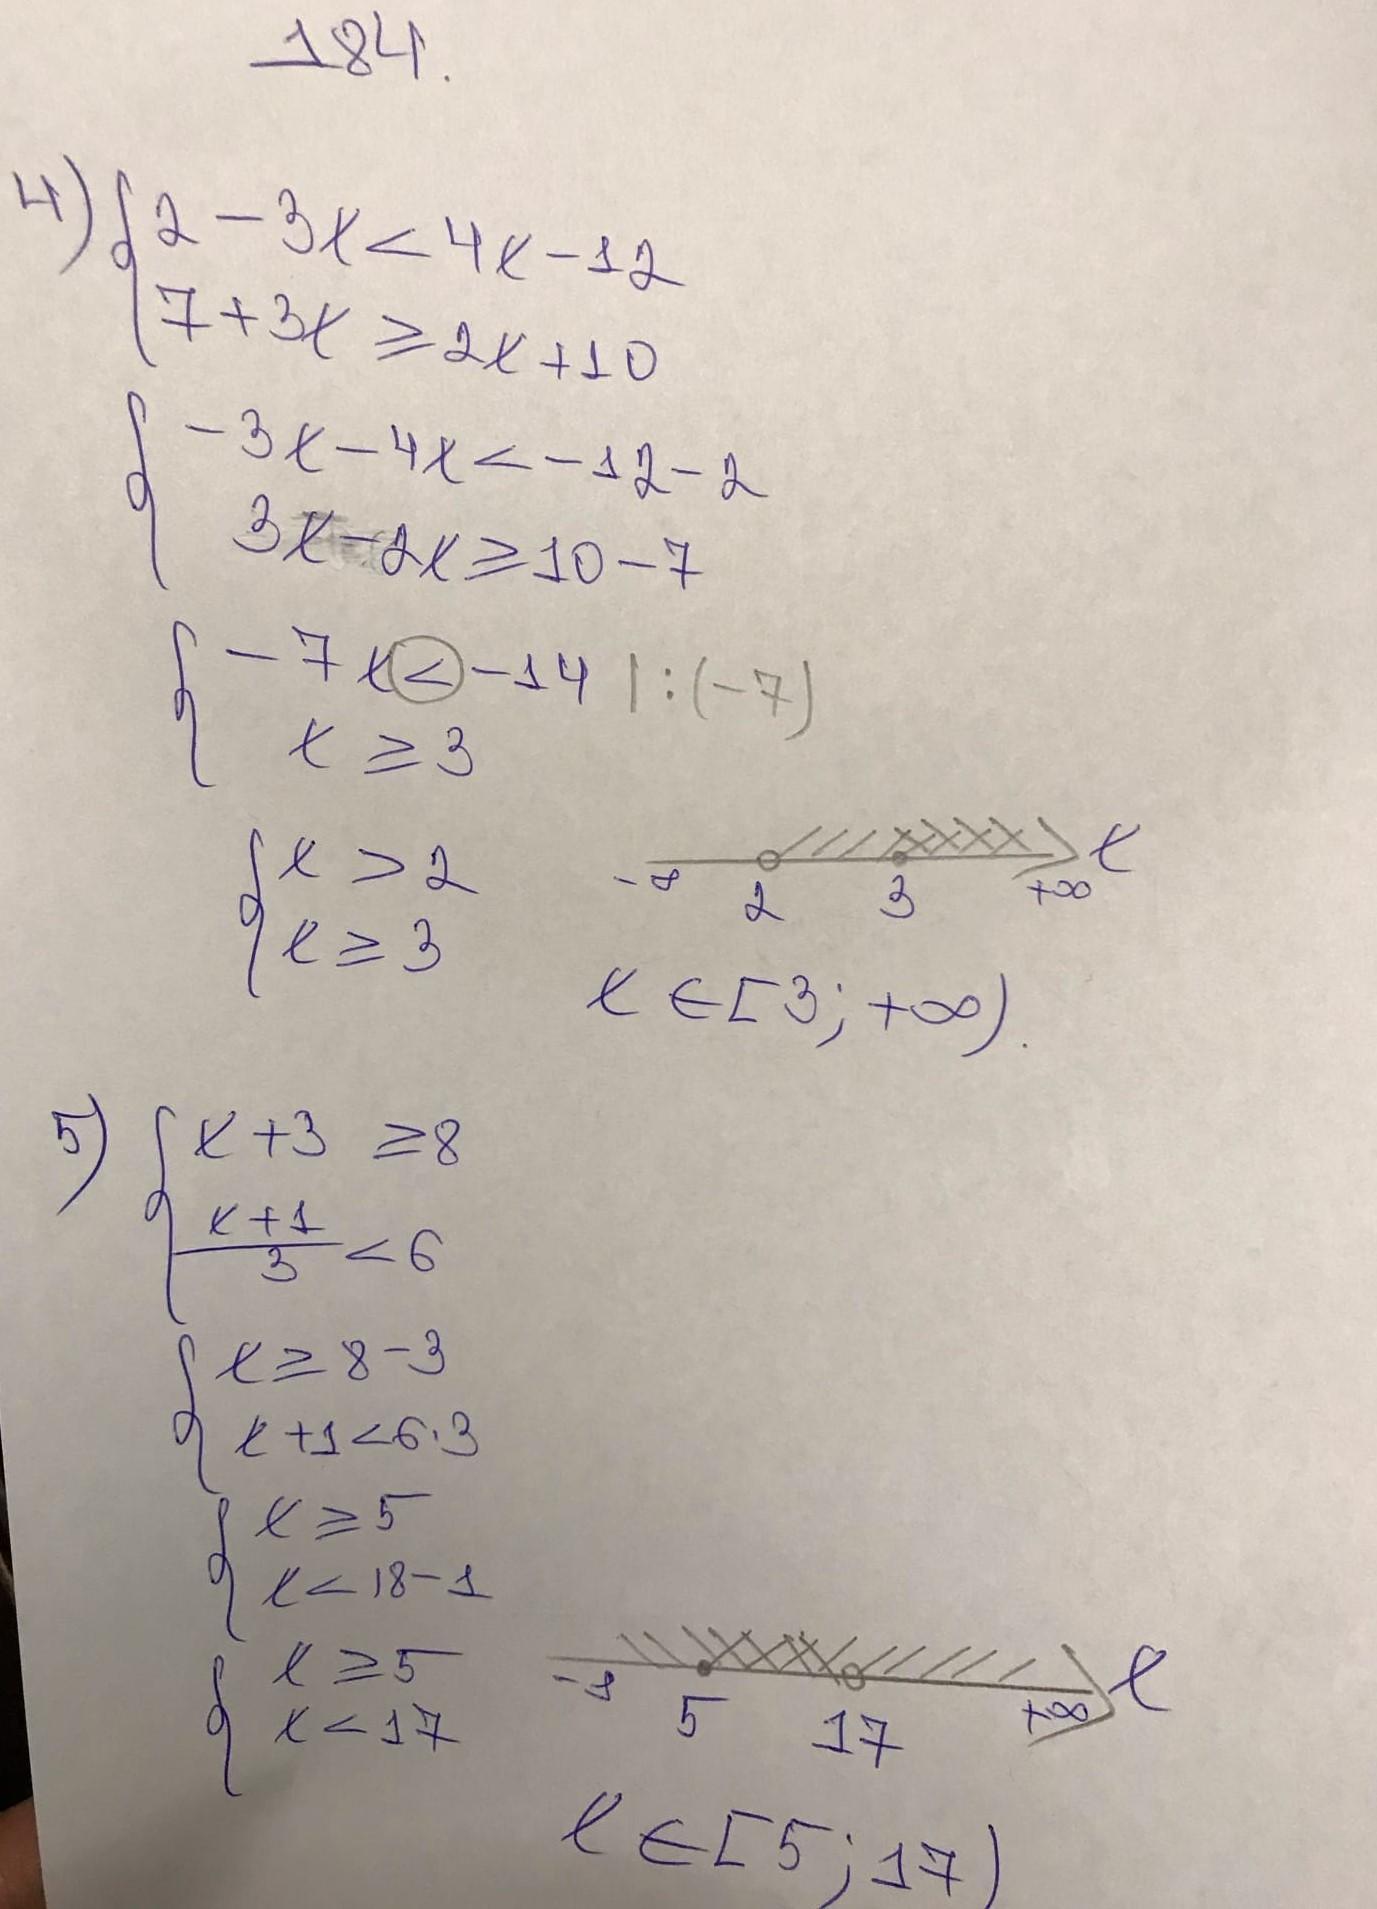 184.
4) { 2 - 3x < 4x - 12
7 + 3x ≥ 2x + 10
{ - 3x - 4x < - 12 - 2
3x - 2x ≥ 10 - 7
{ - 7x < - 14 | : (-7)
x ≥ 3
{ x > 2
x ≥ 3
-∞ 2 3 +∞ x
x ∈ [3; +∞).
5) { x + 3 ≥ 8
(x + 1)/3 < 6
{ x ≥ 8 - 3
x + 1 < 6·3
{ x ≥ 5
x < 18 - 1
{ x ≥ 5
x < 17
-∞ 5 17 +∞ x
x ∈ [5; 17)